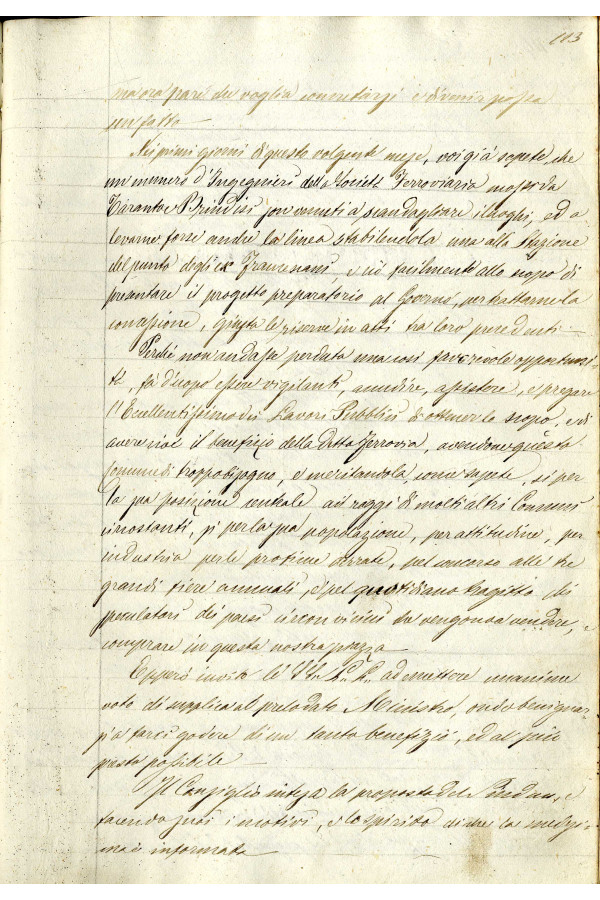 113
ma ora pare che voglia concretarsi e divenir possa
un fatto
Nei primi giorni di questo volgente mese, voi già sapete che
un numero d'Ingegnieri della Società Ferroviaria mossi da
Taranto e Brindisi son venuti a scandagliare i luoghi, ed a
levarne forse anche la linea stabilendola una alla Stazione
del punto degli ex Francescani, e ciò facilmente allo scopo di
presentare il progetto preparatorio al Governo, per trattarne la
concessione, giusta le riserve in atti tra loro precedenti
Perché non andasse perduta una così favorevole opportuni-
tà, fa d'uopo essere vigilanti, accudire, assistere, e pregare
l'Eccellentissimo dei Lavori Pubblici di ottener lo scopo, e di
avere cioè il beneficio della detta Ferrovia, avendone questo
Comune di troppo bisogno, e meritandola come sapete, sì per
la sua posizione centrale ai raggi di molti altri Comuni
circostanti, sì per la sua popolazione, per attitudine, per
industria per le derrate, pel concorso alle tre
grandi fiere annuali, e pel quotidiano tragitto dei
speculatori dei paesi circonvicini che vengono a vendere, e
comprare in questa nostra piazza
Epperò invita le VV. LL. ad emettere unanime
voto di supplica al prelodato Ministro, onde benignar-
si a farci godere di un tanto benefizio, ed al più
presto possibile
Il Consiglio intesa la proposta del Sindaco, e
facendo suoi i motivi, e lo spirito cui la medesi-
ma è informata